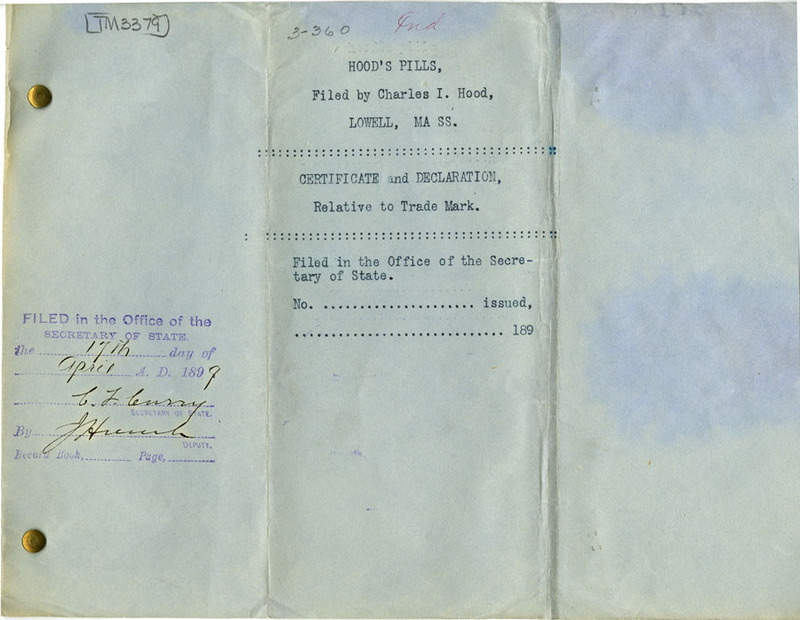 TM3379
3-360
Ind
HOOD'S PILLS,
Filed by Charles I. Hood,
LOWELL, MA SS.
CERTIFICATE and DECLARATION,
Relative to Trade Mark.
Filed in the Office of the Secre-
tary of State.
No. .................... issued,
............................ 189
FILED in the Office of the
SECRETARY OF STATE.
the 17th day of
April A. D. 1899
C. F. Curry
SECRETARY OF STATE.
By
DEPUTY.
Record Book, Page,